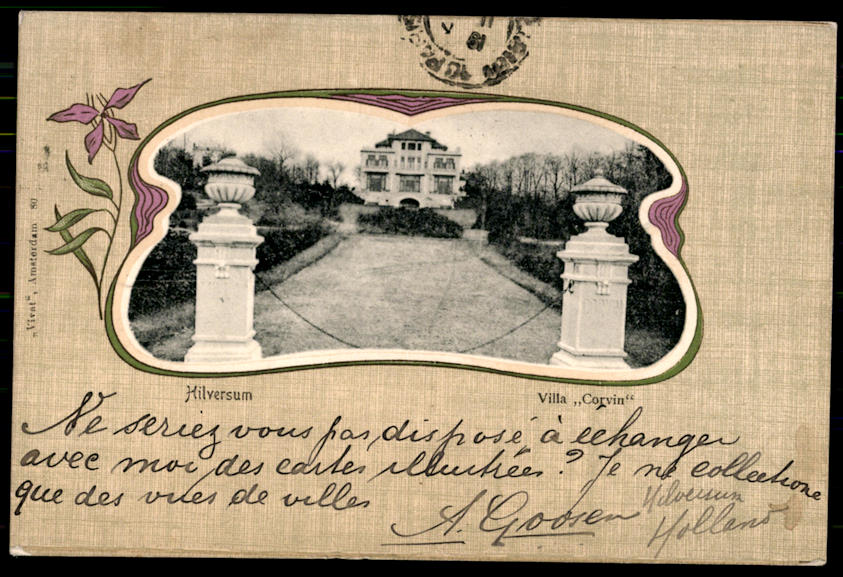 „Vivat", Amsterdam 80
Hilversum
Villa „Corvin"
Ne seriez vous pas disposé à échanger
avec moi des cartes illustrées? Je ne collectionne
que des vues de villes
A. Goosen
Hilversum
Holland